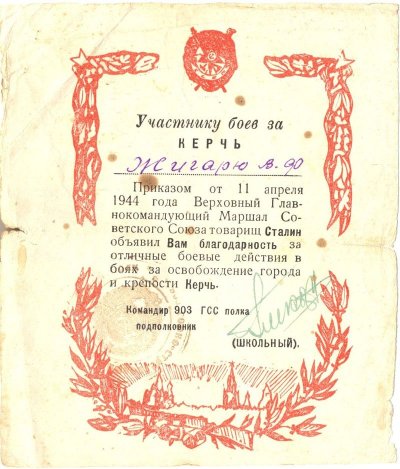 Участнику боев за
КЕРЧЬ
Жигарю В. Ф
Приказом от 11 апреля
1944 года Верховный Глав-
нокомандующий Маршал Со-
ветского Союза товарищ Сталин
объявил Вам благодарность за
отличные боевые действия в
боях за освобождение города
и крепости Керчь.
Командир 903 ГСС полка
подполковник
(ШКОЛЬНЫЙ).